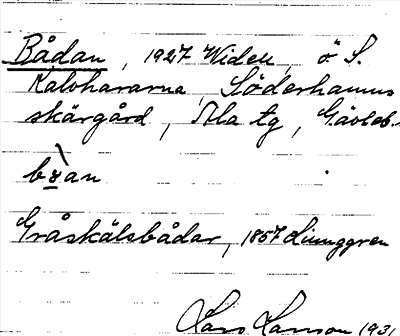 Bådan, 1927 Widell, ö S.
Kalvhararna, Söderhamns
skärgård, Ala tg, Gävleb.
bɤ̀an
Gråskälsbådar, 1857 Ljunggren
Lars Hanson 1931